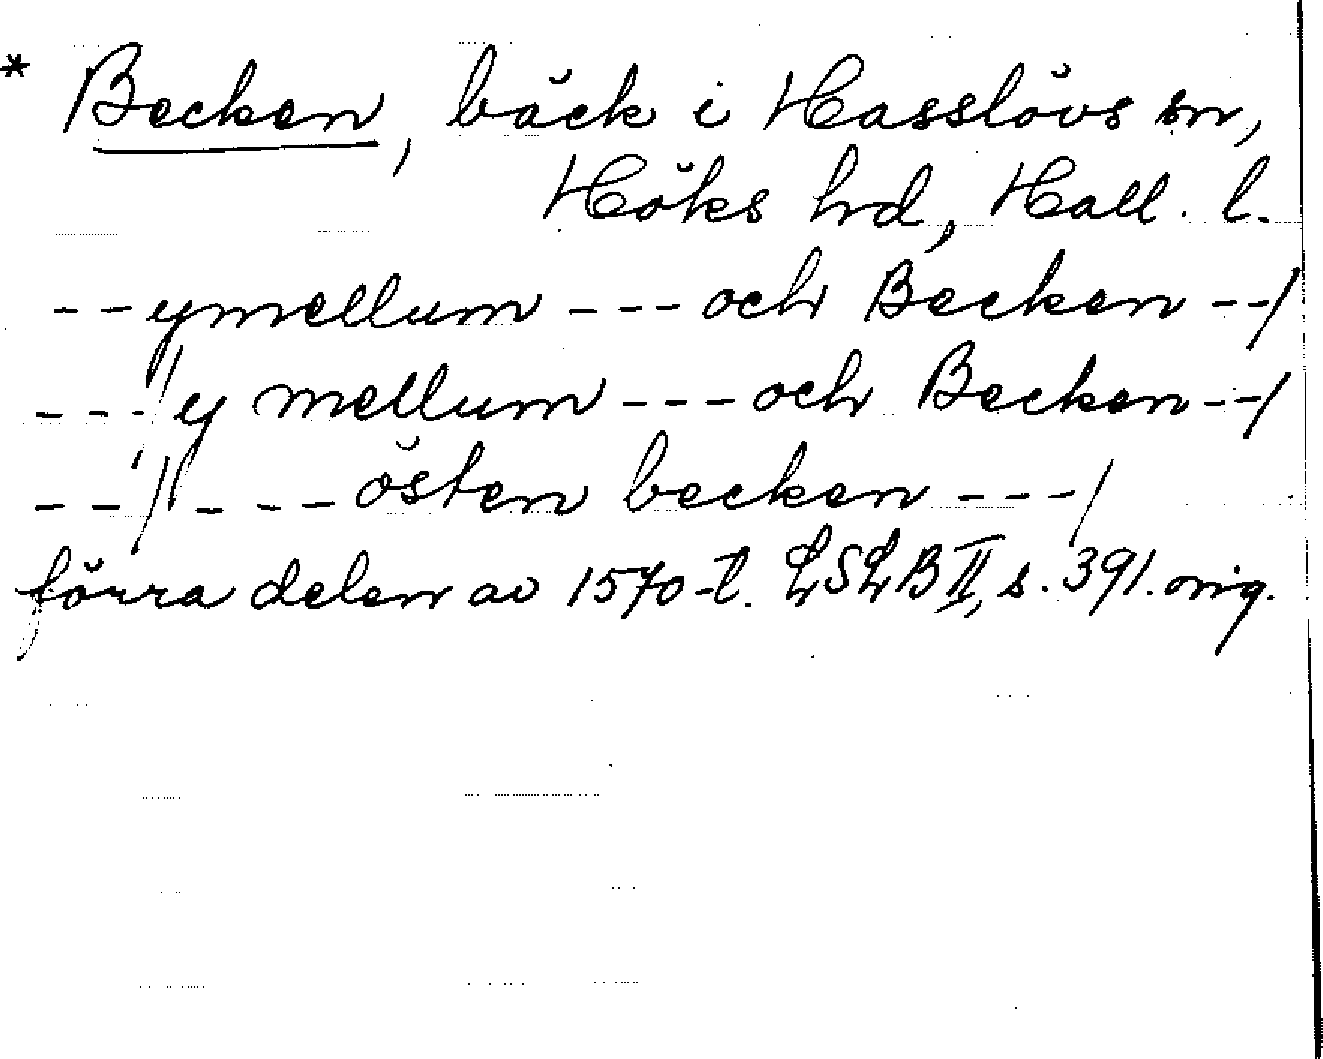 * Becken, bäck i Hasslövs sn,
Höks hrd, Hall. l.
--ymellum --- och Becken --/
---/y mellum --- och Becken --/
--/ --- östen becken ---/
förra delen av 1570-t. LSLB II, s. 391. orig.